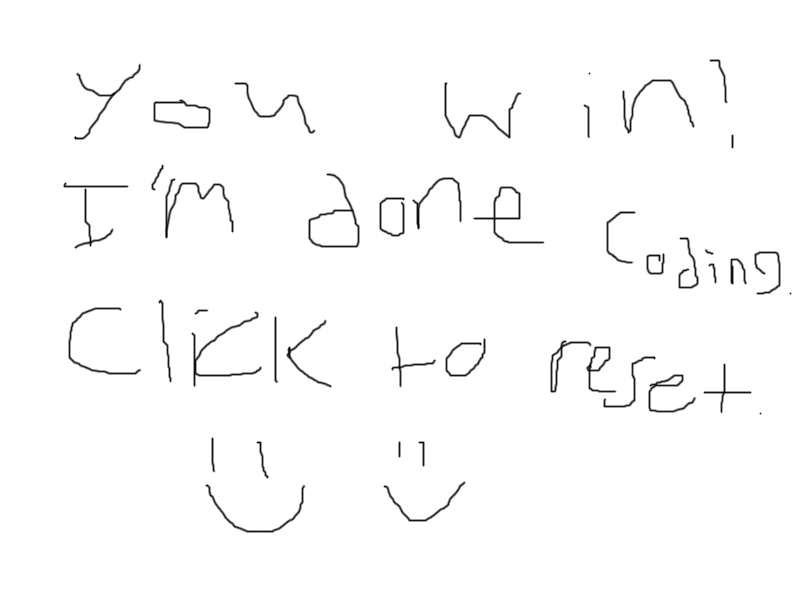 You win!
I'm done coding.
Click to reset.